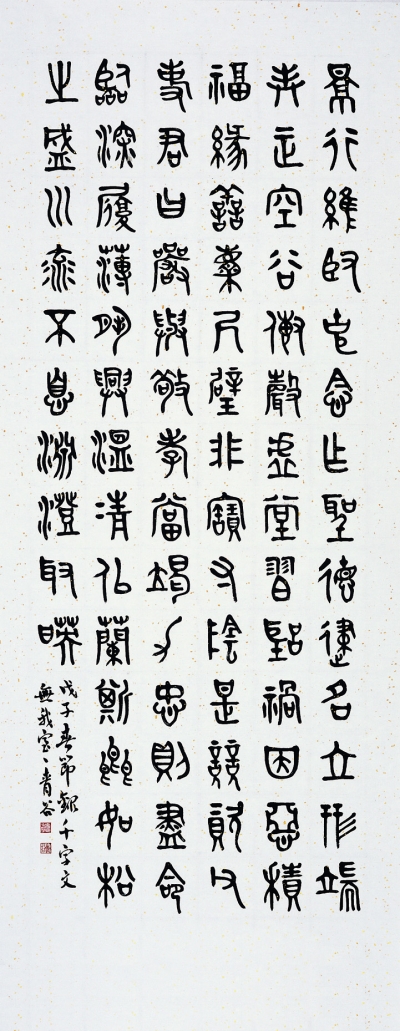 景行維賢克念作聖德建名立形端
表正空谷傳聲虛堂習聽禍因惡積
福緣善慶尺璧非寶寸陰是競資父
事君曰嚴與敬孝當竭力忠則盡命
臨深履薄夙興溫清似蘭斯馨如松
之盛川流不息淵澄取暎
戊子春節錄千字文
無我室 青谷